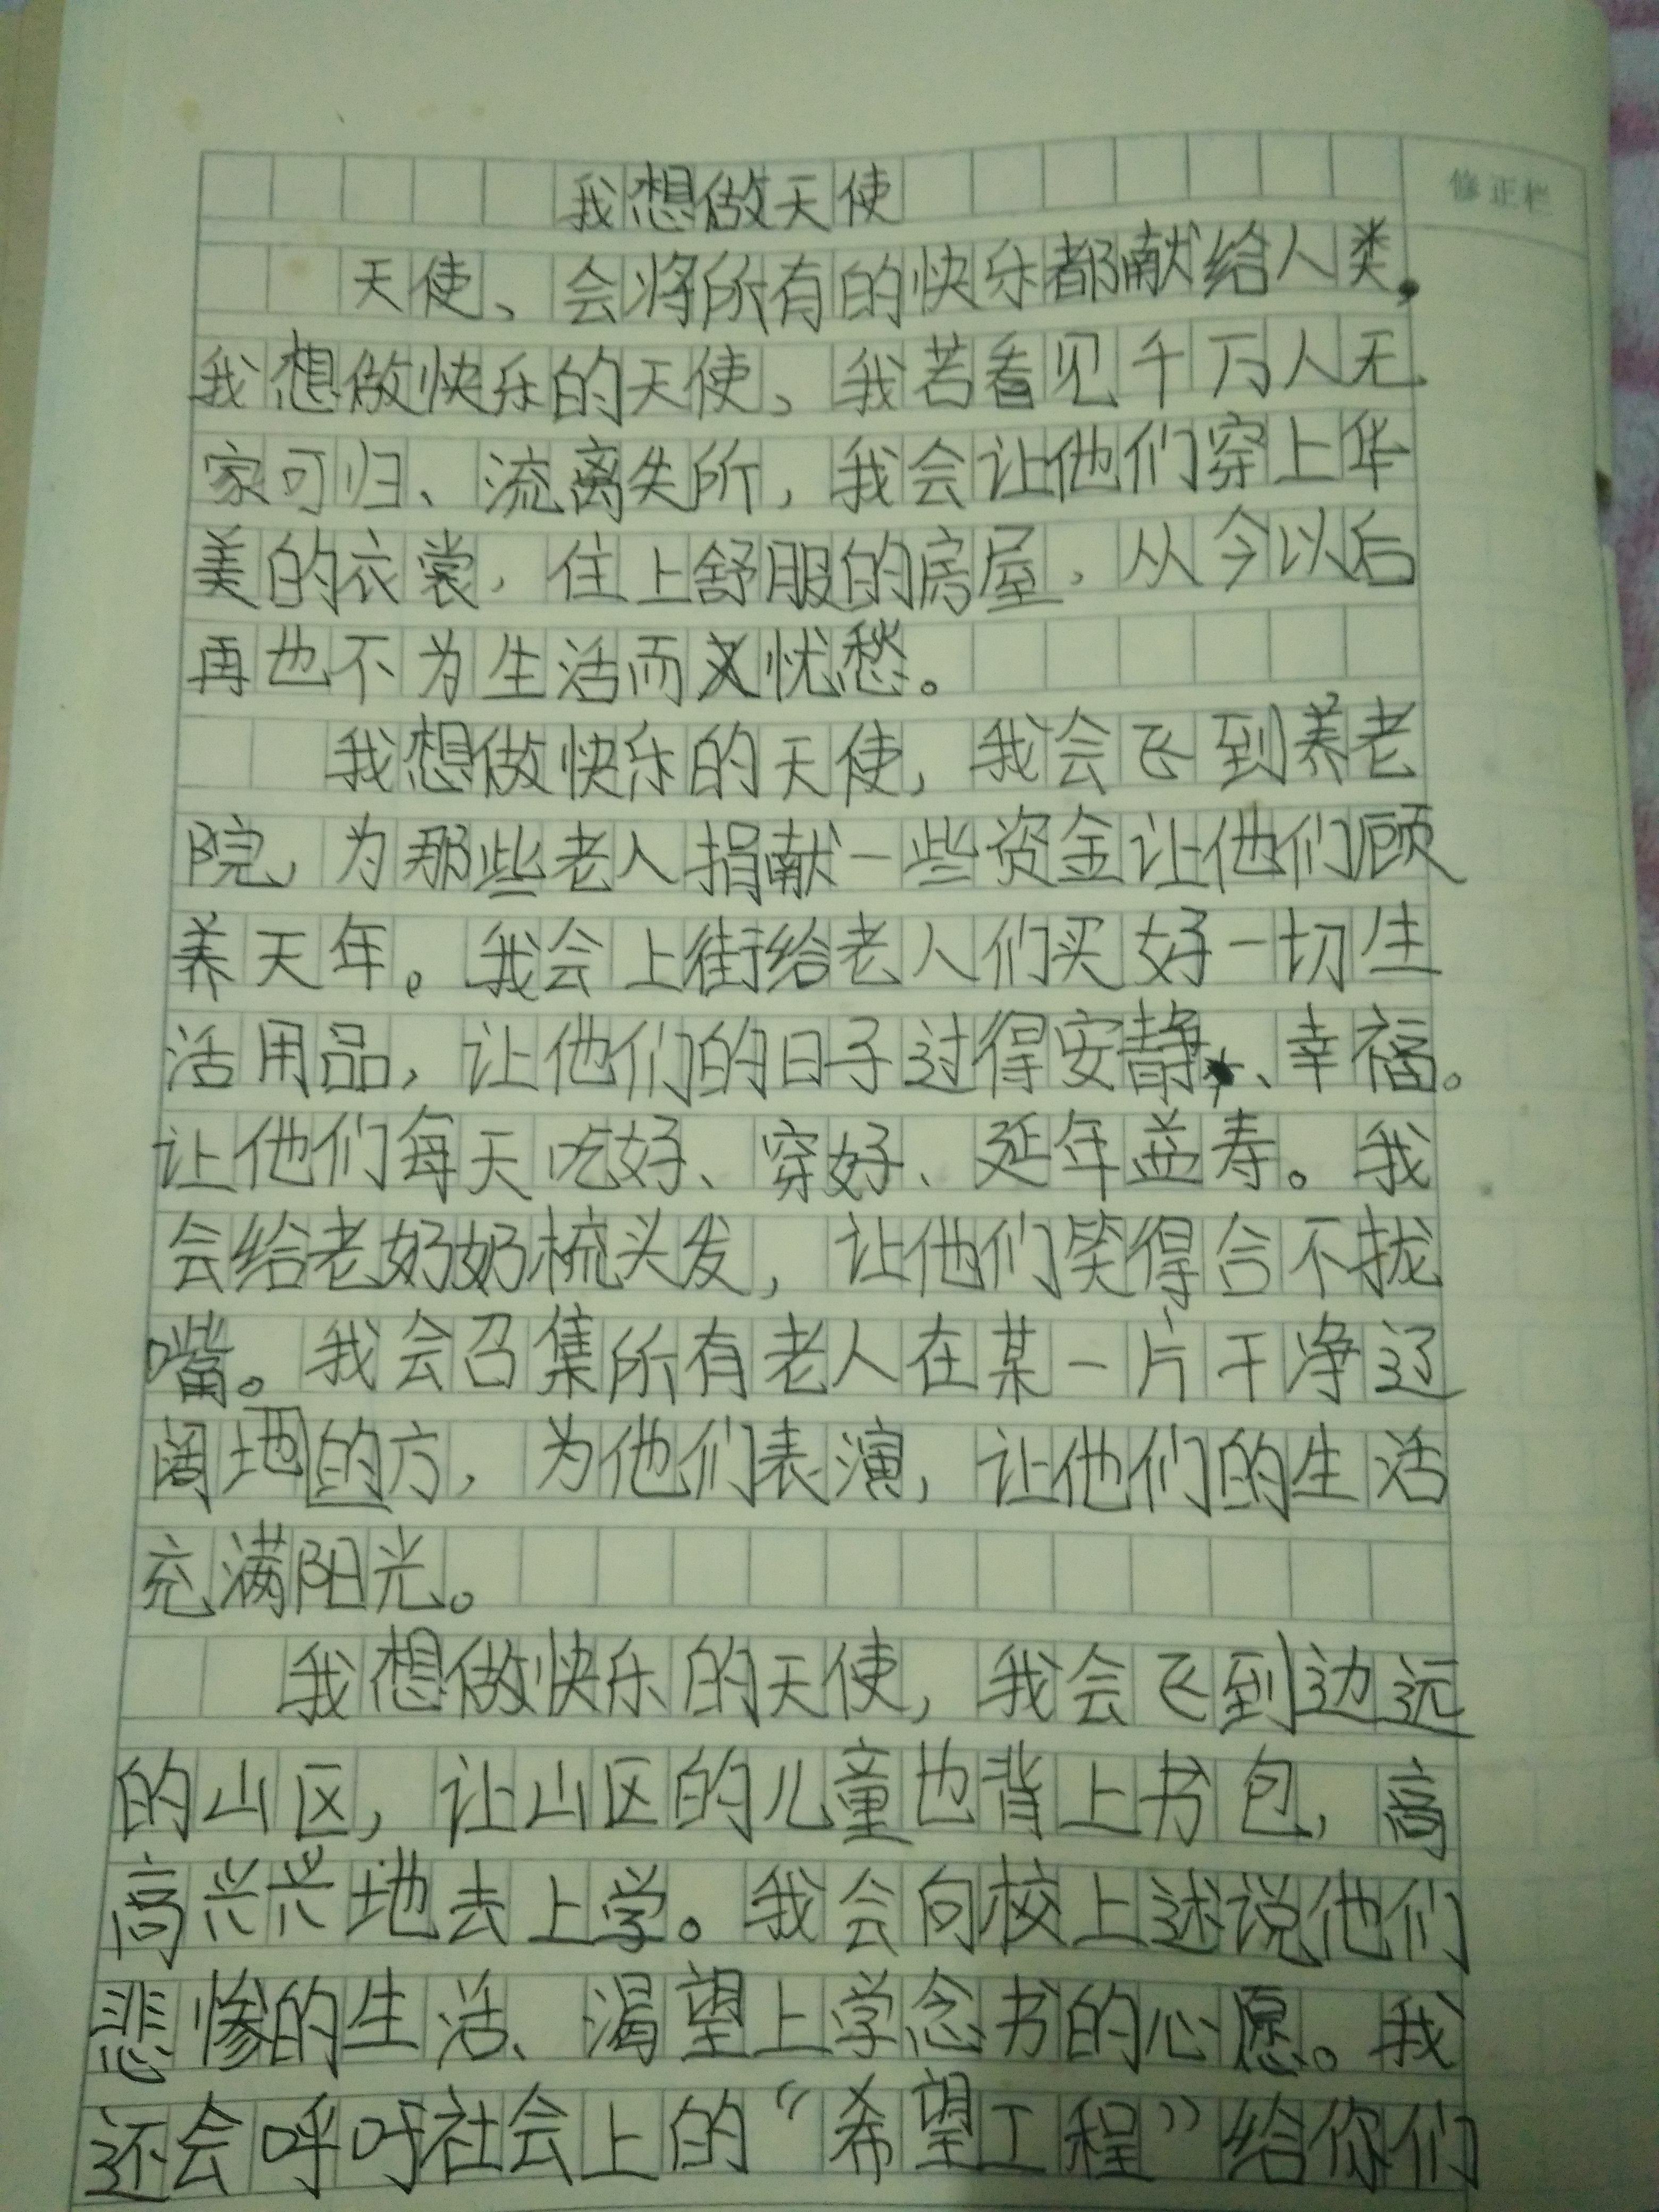 我想做天使
修正栏
天使、会将所有的快乐都献给人类,
我想做快乐的天使、我若看见千万人无
家可归、流离失所,我会让他们穿上华
美的衣裳,住上舒服的房屋,从今以后
再也不为生活而忧愁。
我想做快乐的天使,我会飞到养老
院,为那些老人捐献一些资金让他们顾
养天年。我会上街给老人们买好一切生
活用品,让他们的日子过得安静、幸福。
让他们每天吃好、穿好、延年益寿。我
会给老奶奶梳头发,让他们笑得合不拢
嘴。我会召集所有老人在某一片干净辽
阔地的方,为他们表演,让他们的生活
充满阳光。
我想做快乐的天使,我会飞到边远
的山区,让山区的儿童也背上书包,高
高兴兴地去上学。我会向校上述说他们
悲惨的生活、渴望上学念书的心愿。我
还会呼吁社会上的“希望工程”给你们